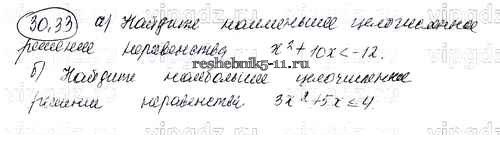 30.33 а) Найдите наименьшее целочисленное
решение неравенства x² + 10x < -12.
reshebnik5-11.ru
б) Найдите наибольшее целочисленное
решение неравенства 3x² + 5x ≤ 4